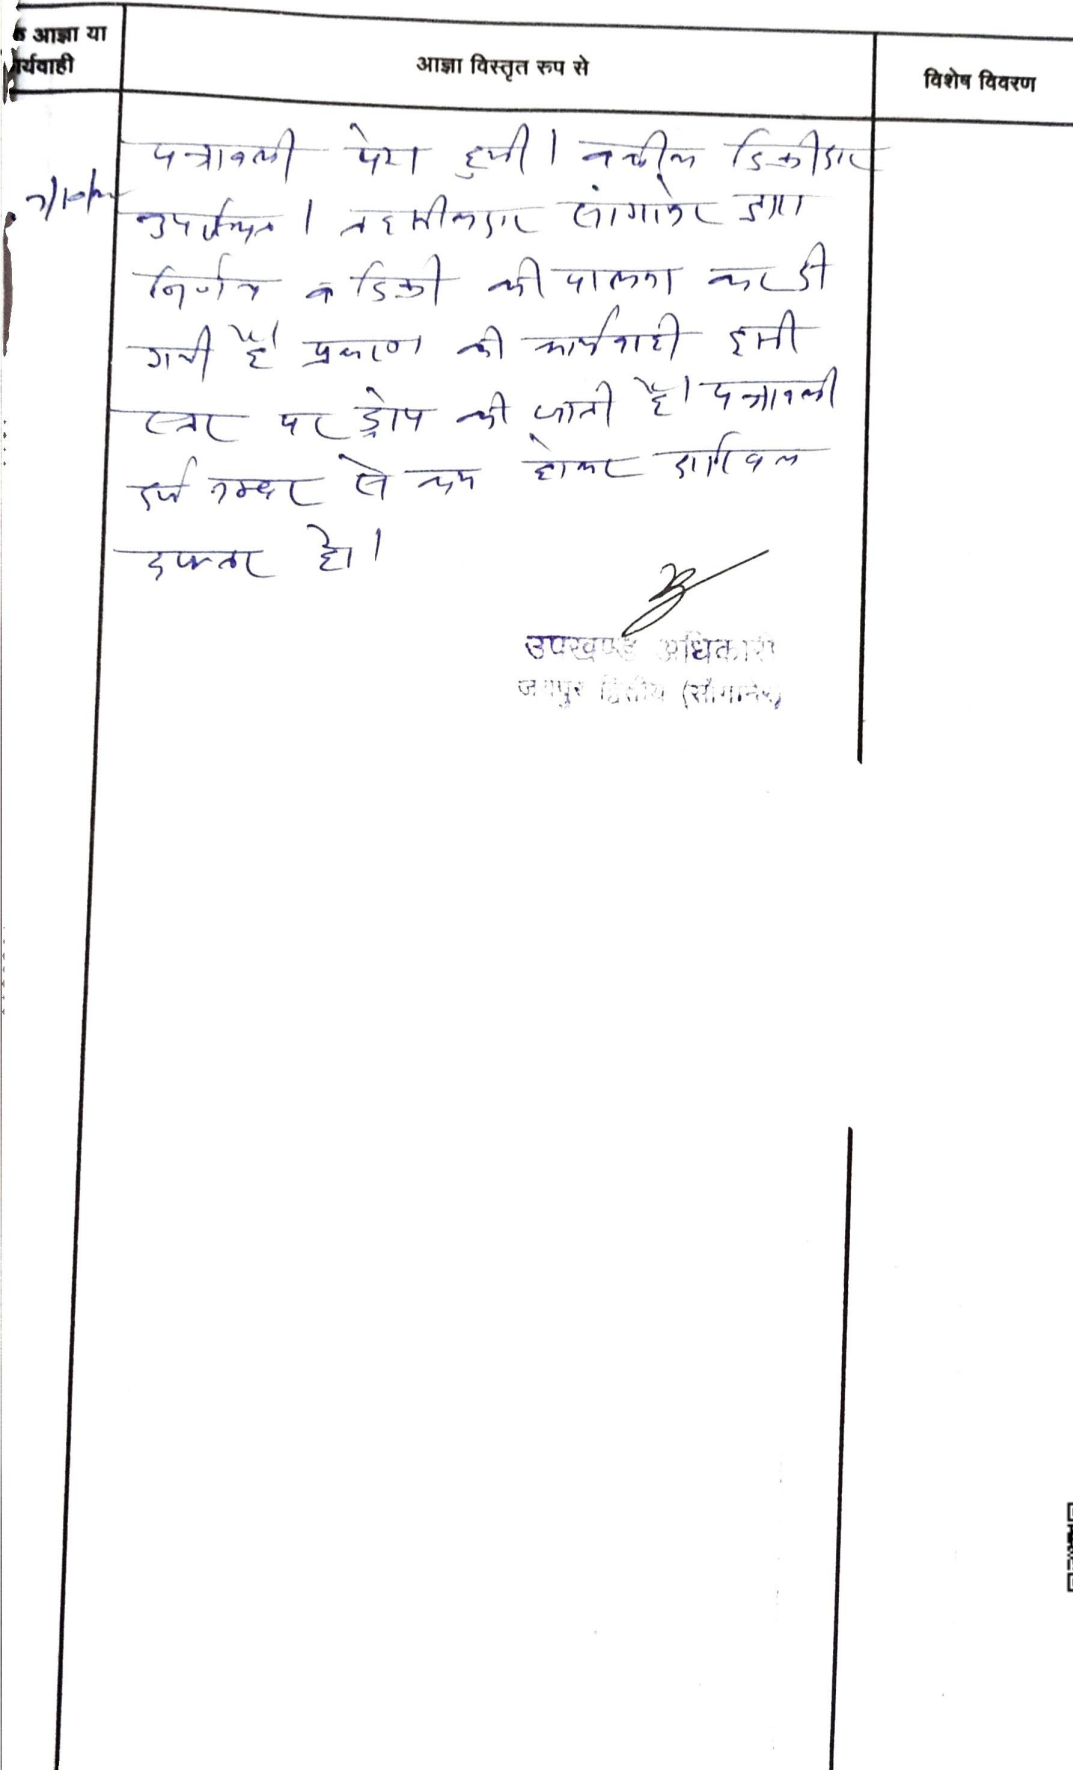 आज्ञा या
र्यवाही
आज्ञा विस्तृत रुप से
विशेष विवरण
पत्रावली पेश हुयी। वकील डिक्रीदार
उपस्थित। तहसीलदार सांगानेर द्वारा
निर्णय व डिक्री की पालना कर दी
गयी है। प्रकरण की कार्यवाही इसी
स्तर पर ड्रोप की जाती है। पत्रावली
दर्ज नम्बर से कम होकर दाखिल
दफ्तर हो।
उपखण्ड अधिकारी
जयपुर द्वितीय (सांगानेर)